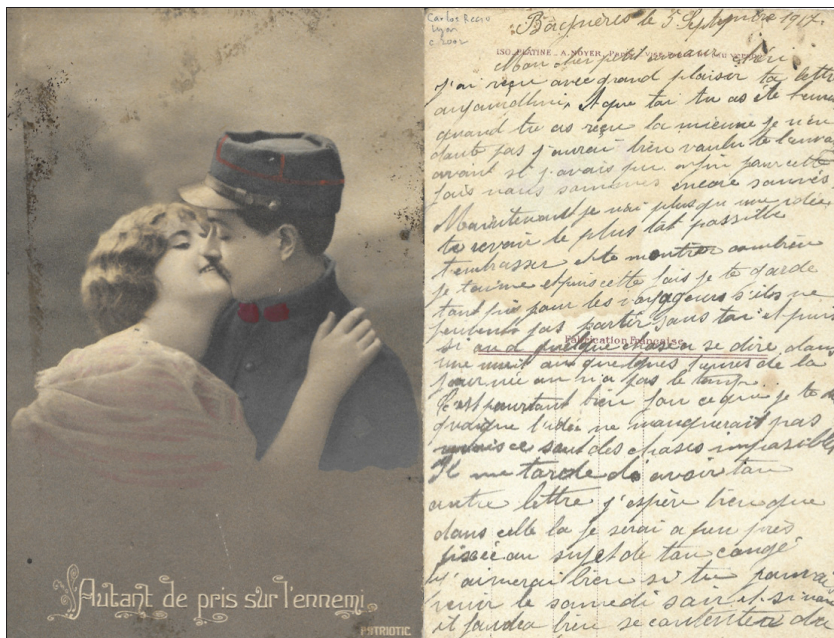 Autant de pris sur l'ennemi.
PATRIOTIC
Carlos Recio
Lyon
c. 2002
Bagnères le 5 Septembre 1917
ISO-PLATINE - A. NOYER
Mon cher petit
j'ai reçu avec grand plaisir ta lettre
aujourd'hui, et que toi tu as été
quand tu as reçu la mienne je n'en
doute pas j'aurai bien voulu te
avant si j'avais pu enfin pour cette
fois nous sommes encore sauvés
Maintenant je n'ai plus qu'une idée
te revoir le plus tôt possible
t'embrasser et te montrer combien
je t'aime et puis cette fois je te garde
tant pis pour les voyageurs s'ils ne
peuvent pas partir sans toi et puis
si on a quelque chose a se dire dans
Fabrication Française
une nuit ou quelques heures de la
journée on n'a pas le temps
C'est pourtant bien ce que je te
quoique l'idée ne manquerait pas
mais ce sont des choses impossibles
Il me tarde d'avoir ton
autre lettre j'espère bien que
dans celle la je serai a peu près
fixée au sujet de ton congé
j'aimerai bien si tu pouvais
venir le samedi soir et si non
il faudra bien se contenter du